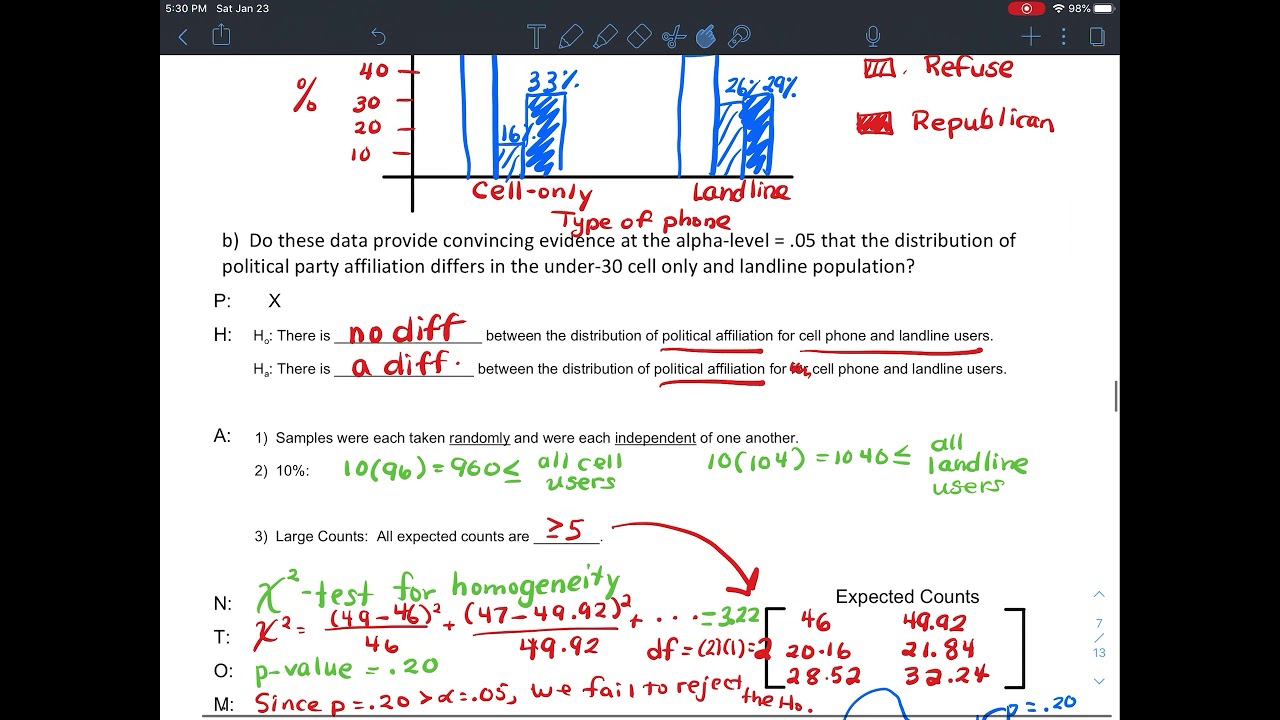 5:30 PM Sat Jan 23
98%
40
30
20
10
%
16%
33%
26%
29%
Refuse
Republican
Cell-only
Landline
Type of phone
b) Do these data provide convincing evidence at the alpha-level = .05 that the distribution of
political party affiliation differs in the under-30 cell only and landline population?
P: X
H: H₀: There is no diff between the distribution of political affiliation for cell phone and landline users.
Hₐ: There is a diff. between the distribution of political affiliation for cell phone and landline users.
A: 1) Samples were each taken randomly and were each independent of one another.
2) 10%: 10(96) = 960 ≤ all cell users
10(104) = 1040 ≤ all landline users
3) Large Counts: All expected counts are ≥5.
N: χ²-test for homogeneity
T: χ² = (49-46)²/46 + (47-49.92)²/49.92 + ... = 3.22
df = (2)(1) = 2
O: p-value = .20
M: Since p = .20 > α = .05, we fail to reject the H₀.
Expected Counts
46 49.92
20.16 21.84
28.52 32.24
p = .20
7
/
13